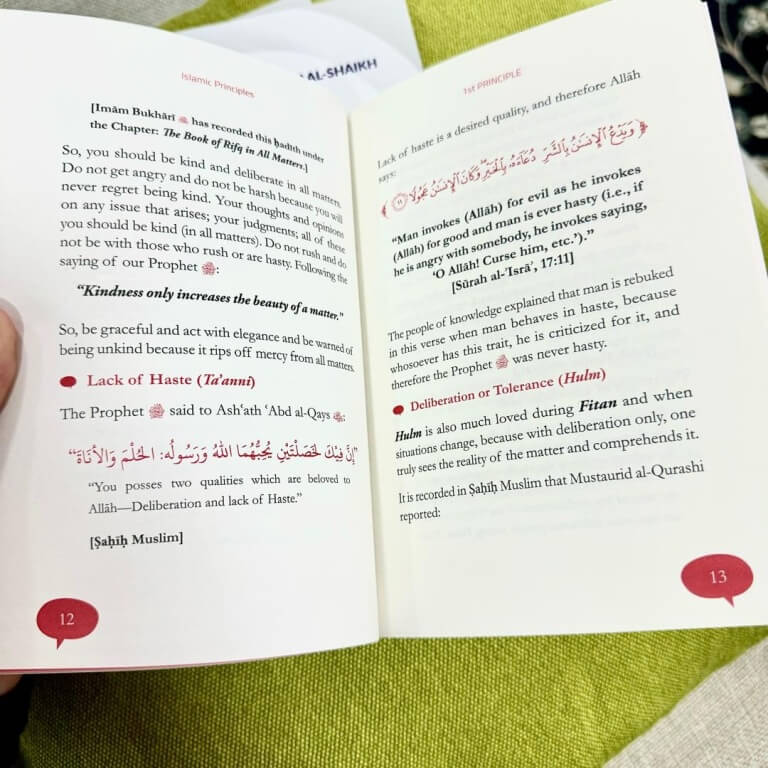 AL-SHAIKH
Islamic Principles
[Imām Bukhārī ﷺ has recorded this ḥadīth under
the Chapter: The Book of Rifq in All Matters.]
So, you should be kind and deliberate in all matters.
Do not get angry and do not be harsh because you will
never regret being kind. Your thoughts and opinions
on any issue that arises; your judgments; all of these
you should be kind (in all matters). Do not rush and do
not be with those who rush or are hasty. Following the
saying of our Prophet ﷺ:
“Kindness only increases the beauty of a matter.”
So, be graceful and act with elegance and be warned of
being unkind because it rips off mercy from all matters.
Lack of Haste (Ta’anni)
The Prophet ﷺ said to Ash‘ath ‘Abd al-Qays:
“إِنَّ فِيْكَ لَخَصْلَتَيْنِ يُحِبُّهُمَا اللهُ وَرَسُولُه: الحُلْمَ وَالأَنَاةَ”
“You posses two qualities which are beloved to
Allāh—Deliberation and lack of Haste.”
[Ṣaḥīḥ Muslim]
12
1st PRINCIPLE
Lack of haste is a desired quality, and therefore Allāh
says:
﴿ وَيَدْعُ ٱلْإِنسَٰنُ بِٱلشَّرِّ دُعَآءَهُۥ بِٱلْخَيْرِ ۖ وَكَانَ ٱلْإِنسَٰنُ عَجُولًا ١١ ﴾
“Man invokes (Allāh) for evil as he invokes
(Allāh) for good and man is ever hasty (i.e., if
he is angry with somebody, he invokes saying,
‘O Allāh! Curse him, etc.’).”
[Sūrah al-’Isrā’, 17:11]
The people of knowledge explained that man is rebuked
in this verse when man behaves in haste, because
whosoever has this trait, he is criticized for it, and
therefore the Prophet ﷺ was never hasty.
Deliberation or Tolerance (Hulm)
Hulm is also much loved during Fitan and when
situations change, because with deliberation only, one
truly sees the reality of the matter and comprehends it.
It is recorded in Ṣaḥīḥ Muslim that Mustaurid al-Qurashi
reported:
13